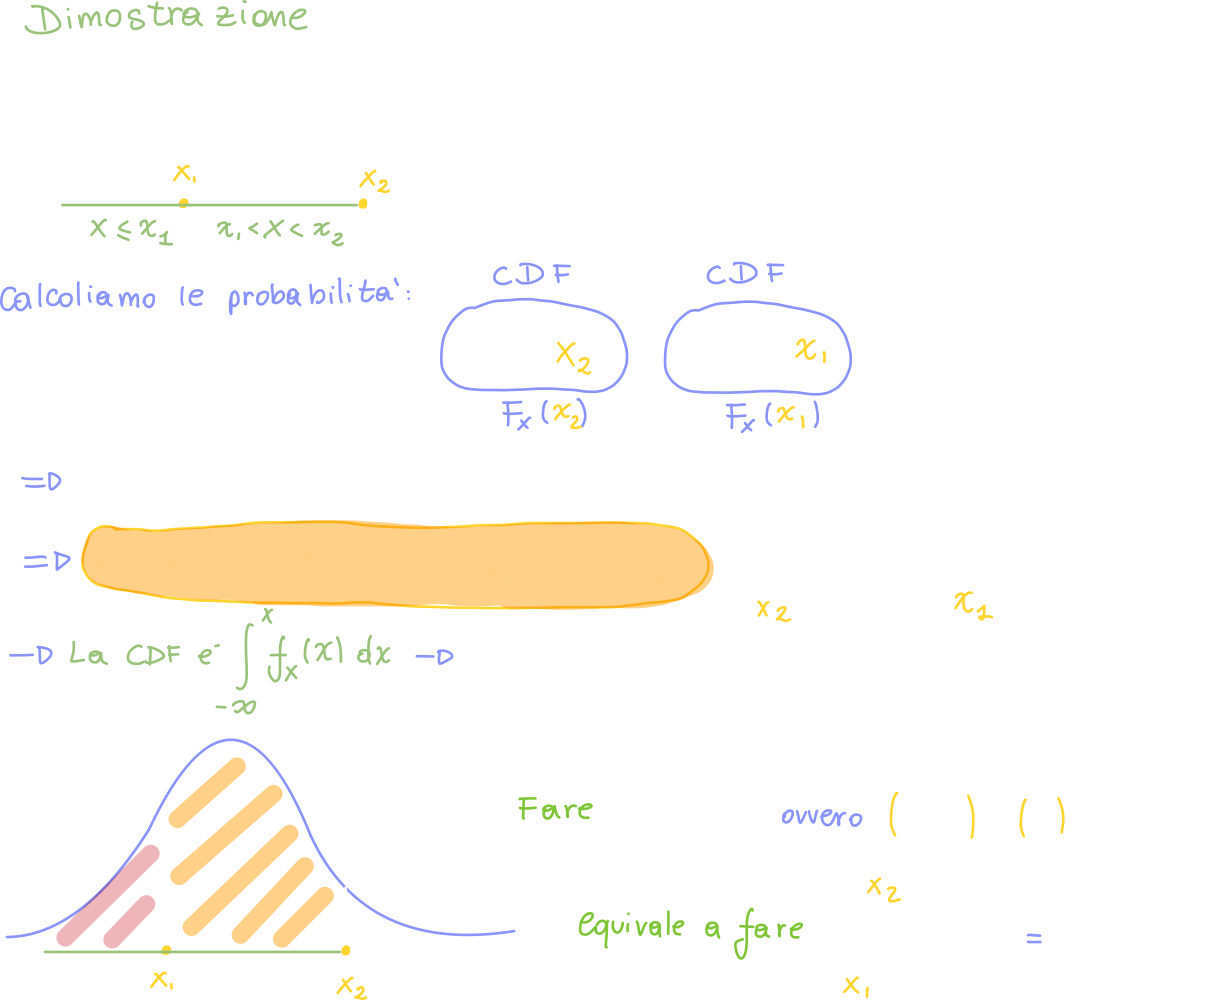 Dimostrazione
x₁ x₂
X ≤ x₁ x₁ < X < x₂
CDF CDF
Calcoliamo le probabilità:
X₂ x₁
Fₓ(x₂) Fₓ(x₁)
=D
=D
x₂ x₁
—D La CDF è ∫_{-∞}^{x} fₓ(x) dx —D
Fare ovvero ( ) ( )
x₂
equivale a fare =
x₁
x₁ x₂